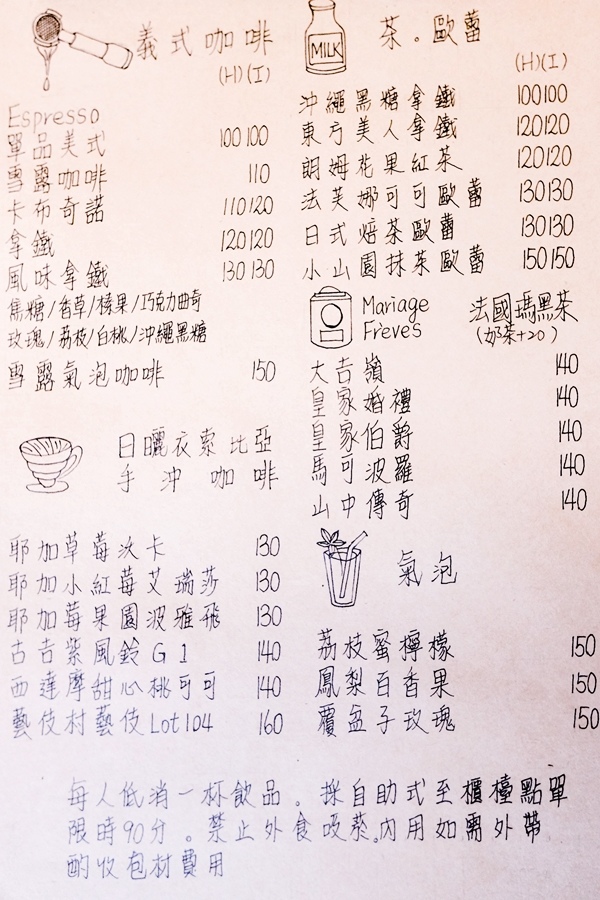 義式咖啡
(H)(I)
Espresso
單品美式 100 100
雪露咖啡 110
卡布奇諾 110 120
拿鐵 120 120
風味拿鐵 130 130
焦糖/香草/榛果/巧克力曲奇
玫瑰/荔枝/白桃/沖繩黑糖
雪露氣泡咖啡 150
日曬衣索比亞
手沖咖啡
耶加草莓沃卡 130
耶加小紅莓艾瑞莎 130
耶加莓果園波雅飛 130
古吉紫風鈴G1 140
西達摩甜心桃可可 140
藝伎村藝伎Lot104 160
MILK
茶。歐蕾
(H)(I)
沖繩黑糖拿鐵 100 100
東方美人拿鐵 120 120
朗姆花果紅茶 120 120
法芙娜可可歐蕾 130 130
日式焙茶歐蕾 130 130
小山園抹茶歐蕾 150 150
Mariage
Frèves
法國瑪黑茶
(奶茶+20)
大吉嶺 140
皇家婚禮 140
皇家伯爵 140
馬可波羅 140
山中傳奇 140
氣泡
荔枝蜜檸檬 150
鳳梨百香果 150
覆盆子玫瑰 150
每人低消一杯飲品。採自助式至櫃檯點單
限時90分。禁止外食吸菸。內用如需外帶
酌收包材費用